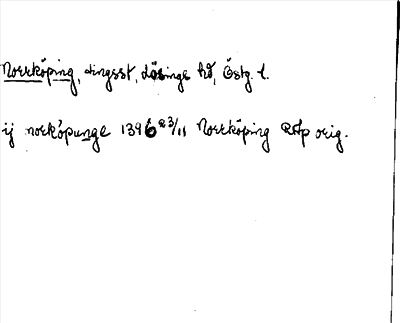 Norrköping, tingsst, Lösings hd, Östg. l.
ij norkøpunge 1396 23/11 Norrköping RAp orig.